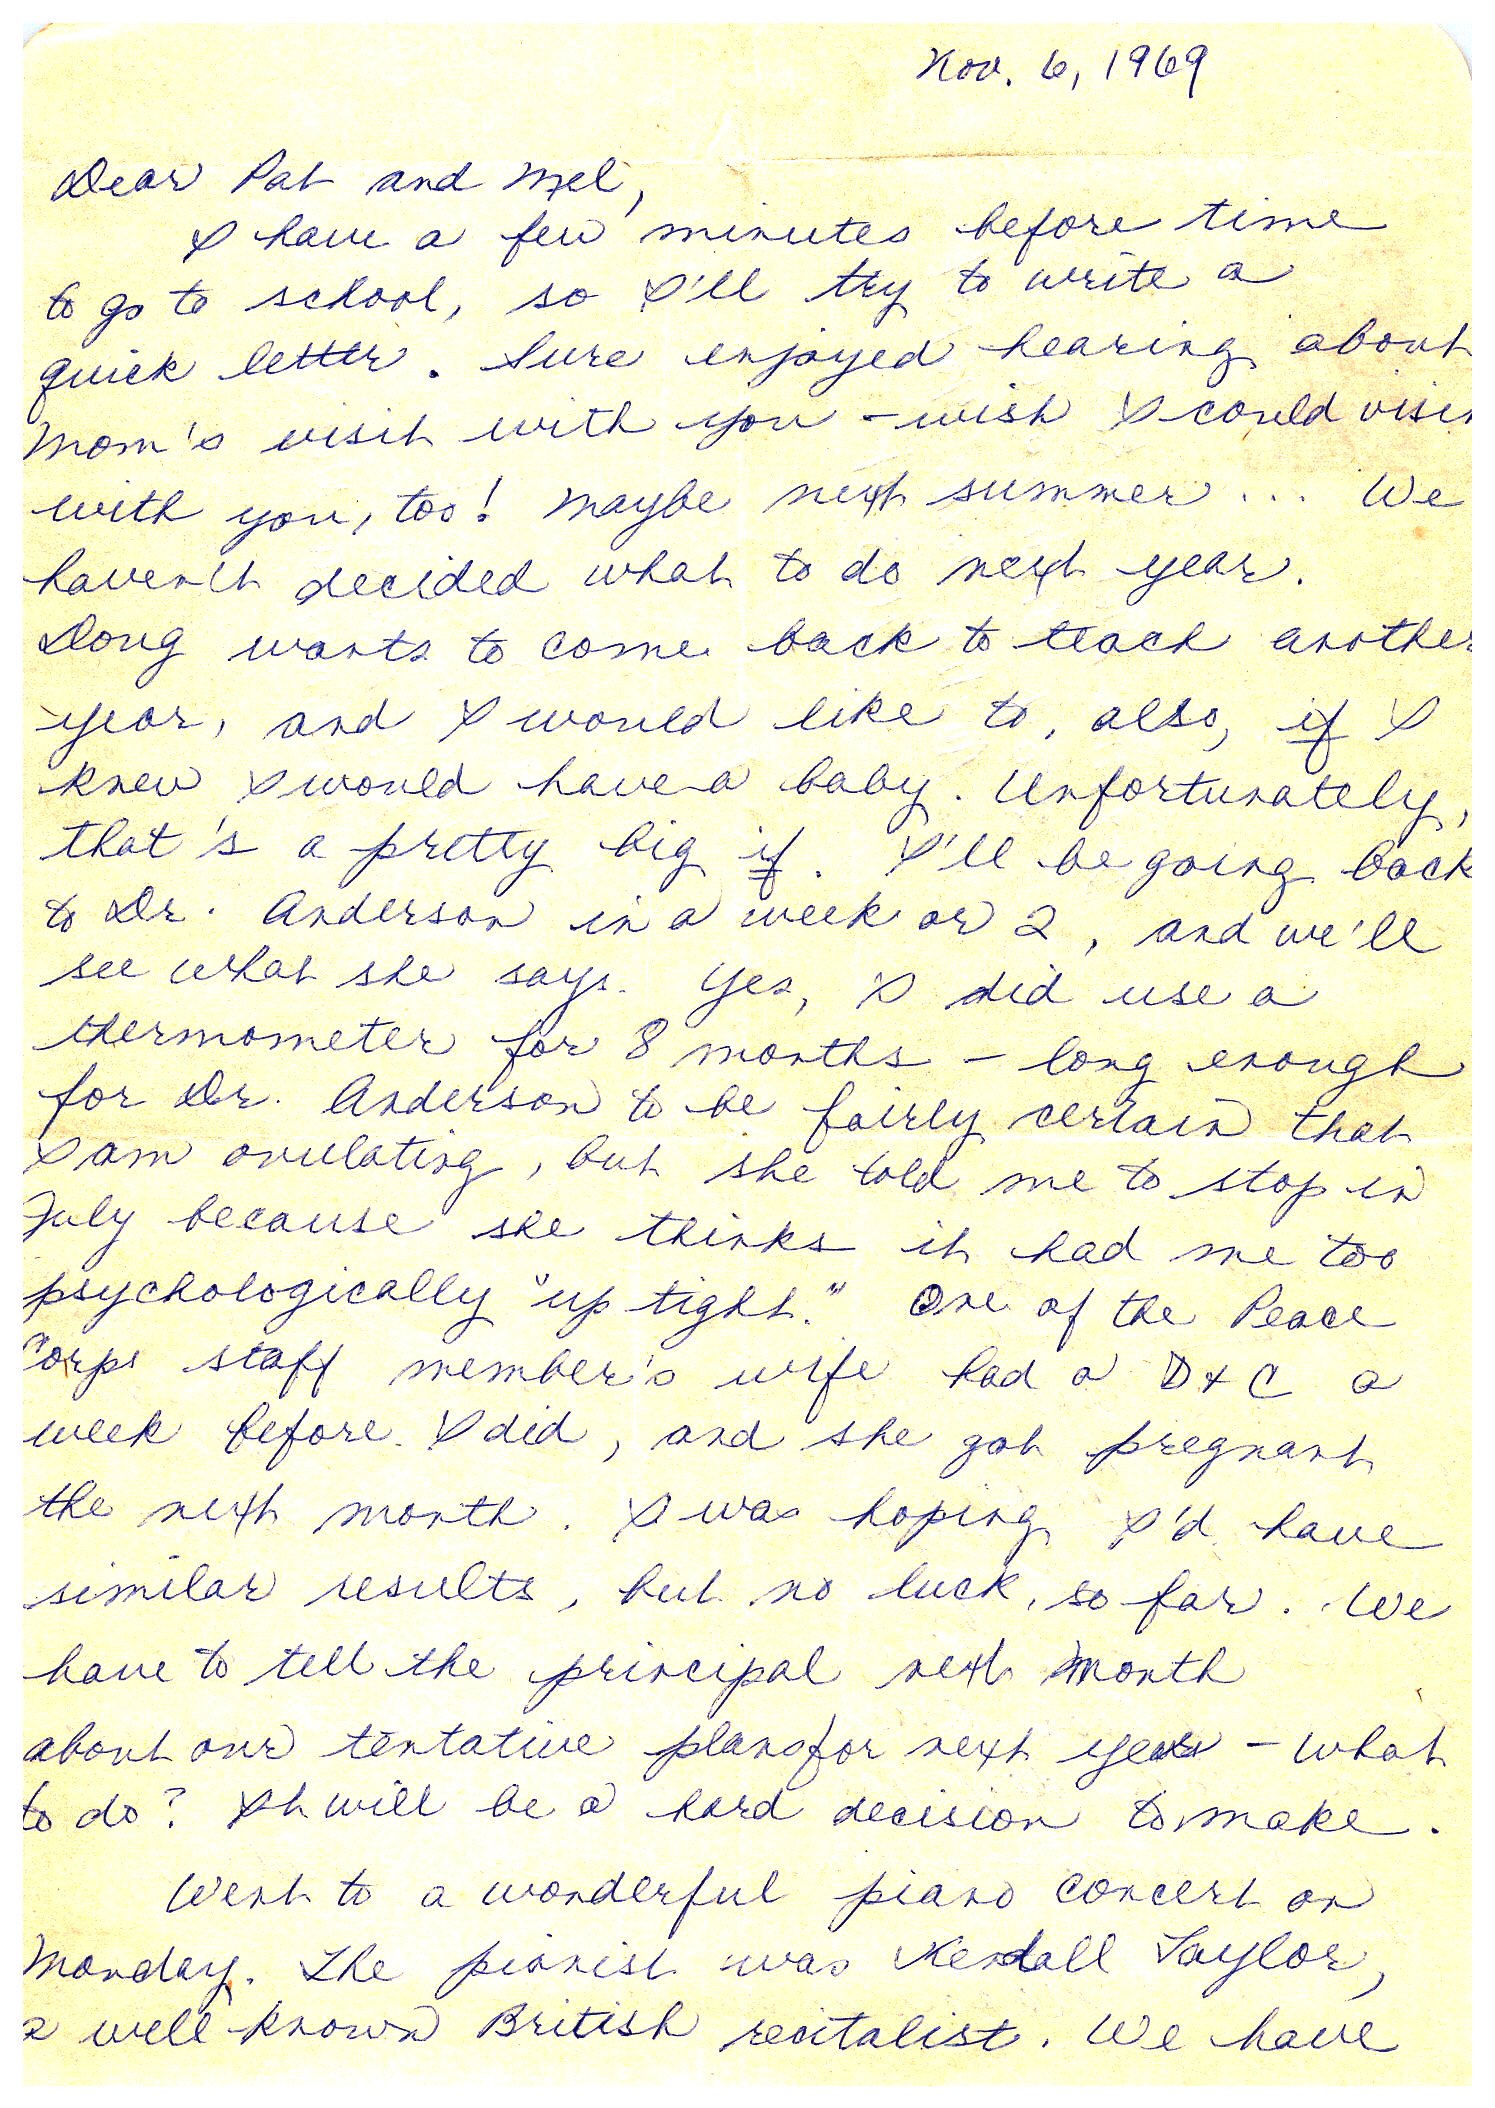 Nov. 6, 1969
Dear Pat and Mel,
I have a few minutes before time
to go to school, so I'll try to write a
quick letter. Sure enjoyed hearing about
Mom's visit with you - wish I could visit
with you, too! Maybe next summer... We
haven't decided what to do next year.
Doug wants to come back to teach another
year, and I would like to, also, if I
knew I would have a baby. Unfortunately,
that's a pretty big if. I'll be going back
to Dr. Anderson in a week or 2, and we'll
see what she says. Yes, I did use a
thermometer for 8 months - long enough
for Dr. Anderson to be fairly certain that
I am ovulating, but she told me to stop in
July because she thinks it had me too
psychologically "up tight." One of the Peace
Corps staff member's wife had a D & C a
week before I did, and she got pregnant
the next month. I was hoping I'd have
similar results, but no luck, so far. We
have to tell the principal next month
about our tentative plans for next year - what
to do? It will be a hard decision to make.
Went to a wonderful piano concert on
Monday. The pianist was Kendall Taylor,
a well known British recitalist. We have